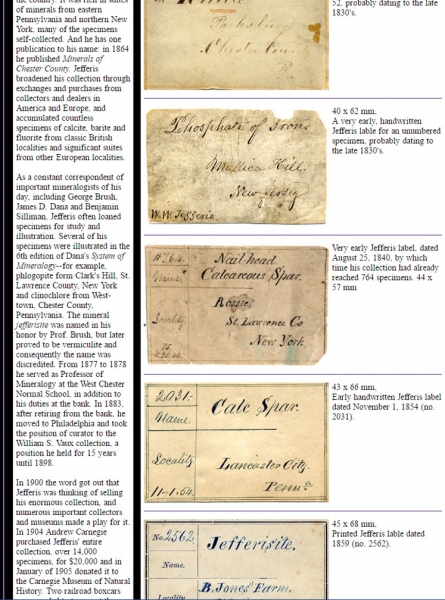 the country. It was rich in suites
of minerals from eastern
Pennsylvania and northern New
York, many of the specimens
self-collected. And he has one
publication to his name: in 1864
he published Minerals of
Chester County. Jefferis
broadened his collection through
exchanges and purchases from
collectors and dealers in
America and Europe, and
accumulated countless
specimens of calcite, barite and
fluorite from classic British
localities and significant suites
from other European localities.
As a constant correspondent of
important mineralogists of his
day, including George Brush,
James D. Dana and Benjamin
Silliman, Jefferis often loaned
specimens for study and
illustration. Several of his
specimens were illustrated in the
6th edition of Dana's System of
Mineralogy--for example,
phlogopite form Clark's Hill, St.
Lawrence County, New York
and clinochlore from West-
town, Chester County,
Pennsylvania. The mineral
jefferisite was named in his
honor by Prof. Brush, but later
proved to be vermiculite and
consequently the name was
discredited. From 1877 to 1878
he served as Professor of
Mineralogy at the West Chester
Normal School, in addition to
his duties at the bank. In 1883,
after retiring from the bank, he
moved to Philadelphia and took
the position of curator to the
William S. Vaux collection, a
position he held for 15 years
until 1898.
In 1900 the word got out that
Jefferis was thinking of selling
his enormous collection, and
numerous important collectors
and museums made a play for it.
In 1904 Andrew Carnegie
purchased Jefferis' entire
collection, over 14,000
specimens, for $20,000 and in
January of 1905 donated it to
the Carnegie Museum of Natural
History. Two railroad boxcars
Chester County
52, probably dating to the late
1830's.
Phosphate of Iron
Mullica Hill.
New Jersey
W.W. Jefferis
40 x 62 mm,
A very early, handwritten
Jefferis lable for an unumbered
specimen, probably dating to
the late 1830's.
#764 Nail head
Name Calcareous Spar.
Locality Rossie,
St. Lawrence Co
New York
Very early Jefferis label, dated
August 25, 1840, by which
time his collection had already
reached 764 specimens. 44 x
57 mm
2031- Calc Spar.
Name.
Locality Lancaster City.
11-1.54. Penna
43 x 66 mm.
Early handwritten Jefferis label
dated November 1, 1854 (no.
2031).
No. 2562 Jefferisite.
Name.
B. Jones' Farm.
Locality
45 x 68 mm,
Printed Jefferis lable dated
1859 (no. 2562).